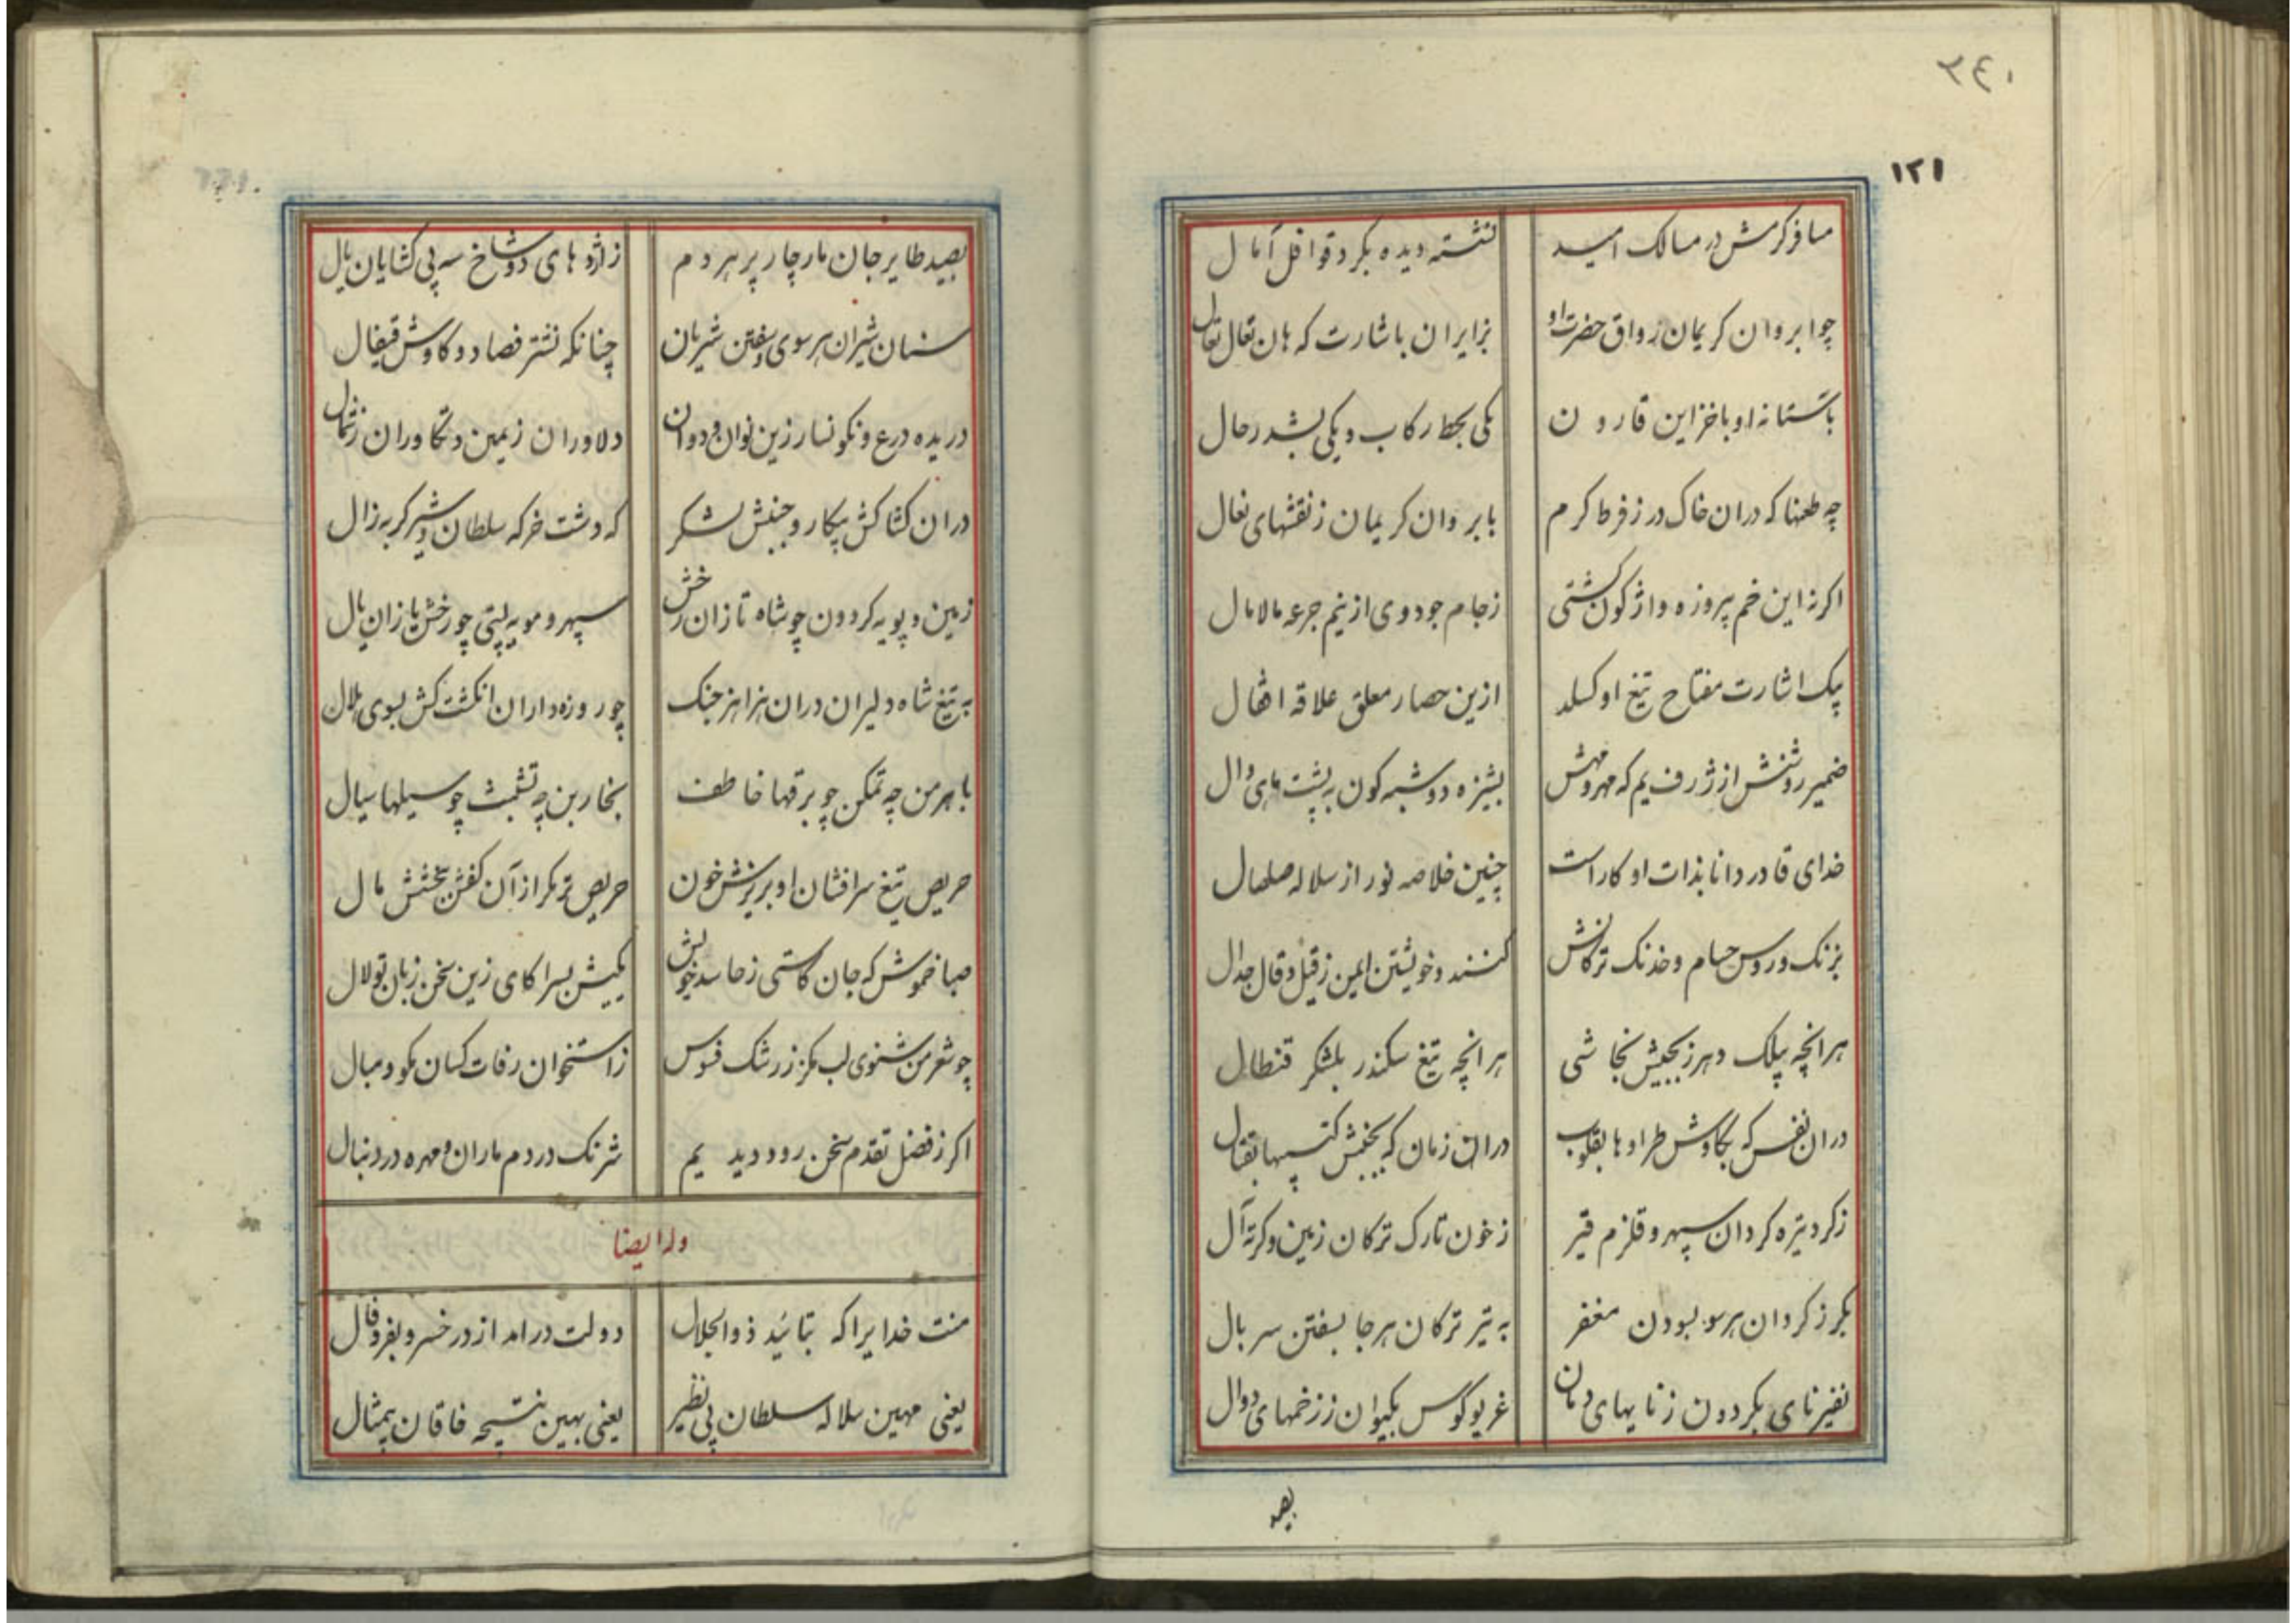 ٢٤٠
١٢١
مسافر کرمش در مسالک امید نشسته دیده بکرد قوافل آمال
چو ابروان کریمان رواق حضرت او بزایران باشارت که هان تعال تعال
بآستانه او با خزاین قارون یکی بحط رکاب و یکی بشد رحال
چه طعنها که دران خاک در ز فرط کرم بابروان کریمان ز نقشهای نعال
اکر نه این خم پیروزه واژکون کشتی ز جام جود وی از نیم جرعه مالامال
بیک اشارت مفتاح تیغ او کسلد ازین حصار معلق علاقه اقفال
ضمیر روشنش از ژرف یم که مهر و مهش پشیزه دو شبه کون به پشت ماهی وال
خدای قادر دانا بذات او کار است چنین خلاصه نور از سلاله صلصال
بزنک و روس حسام و خدنک ترکانش کنند و خویشتن ایمن ز قیل و قال جدال
هر انچه بیلک دهرز بجیش نجاشی هر انچه تیغ سکندر بلشکر قنطال
دران نفس که بکاوش طرادها بقلوب دران زمان که بجنبش کتیبها بقتال
ز کرد تیره کردان سپهر و قلزم قیر ز خون تارک ترکان زمین و کرته آل
بکرز کردان هر سو بسودن مغفر به تیر ترکان هر جا بسفتن سربال
نفیر نای بکردون ز نایهای دمان غریو کوس بکیوان ز زخمهای دوال
بصید
بصید طایر جان مار چار پر هر دم ز اژدهای دو شاخ سه پی کشایان بال
سنان شیران هر سوی و سفتن شریان چنانکه نشتر فصاد و کاوش قیفال
دریده درع و نکونسار زین نوان و دوان دلاوران زمین و تکاوران ز شمال
دران کشاکش پیکار و جنبش لشکر که دشت خرکه سلطان و شیر کربه زال
زمین و پویه کردون چو شاه تازان رخش سپهر و مویه لیتی چو رخش یازان یال
به تیغ شاه دلیران دران هزاهز جنک چو روزه داران انکشت کش بسوی هلال
باهرمن چه تمکن چو برقها خاطف بخاربن چه تشبث چو سیلها سیال
حریص تیغ سرافشان او بریزش خون حریص تر مکر از آن کفش ببخشش مال
صبا خموش که جان کاستی ز حاسد خویش بکیش بسرا کای زین سخن زبان تو لال
چو شعر من شنوی لب مکز ز رشک فسوس ز استخوان رفات کسان مکو و مبال
اکر ز فضل تقدم سخن رود دیدیم شرنک در دم ماران و مهره در دنبال
وله ایضا
منت خدایرا که بتائید ذوالجلال دولت درامد از در خسرو بفر و فال
یعنی مهین سلاله سلطان بی نظیر یعنی بهین نتیجه خاقان بیمثال